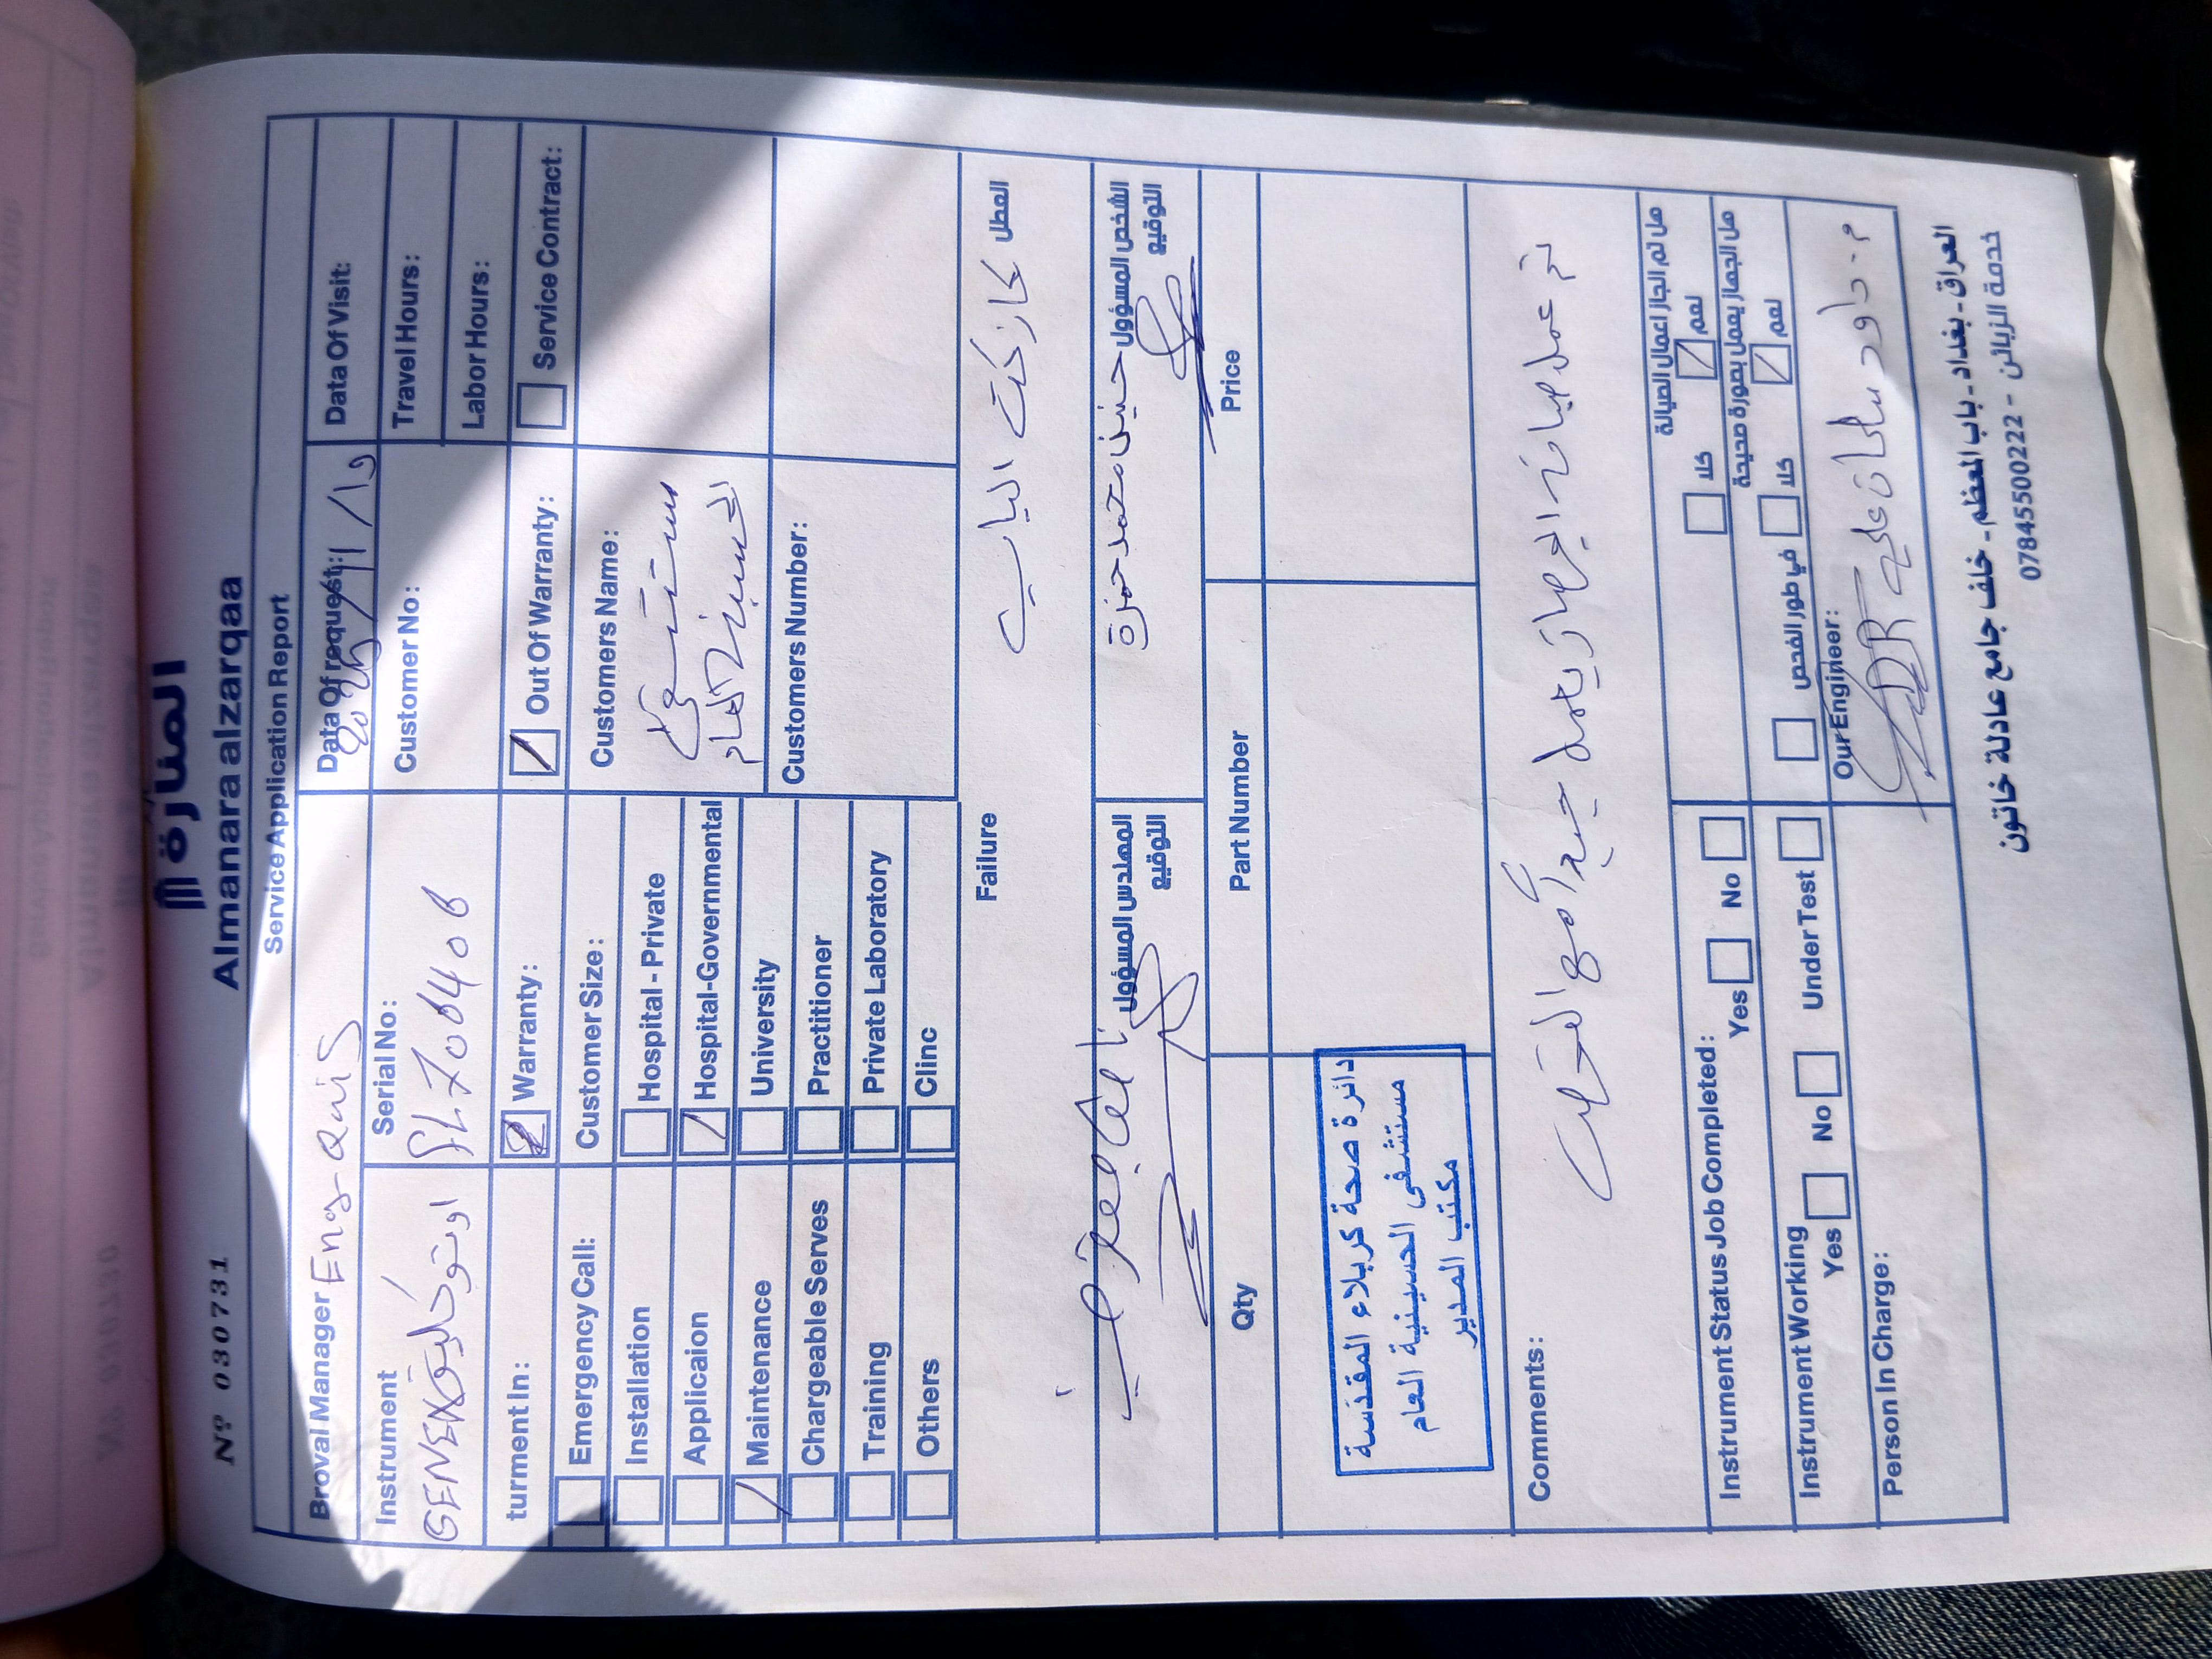 المنارة
Almanara alzarqaa
Nº 030731
Service Application Report
Broval Manager Eng. Qais
Data Of request: 2025/11/19
Data Of Visit:
Instrument
GENEX اوتوكليف
Serial No:
SL700406
Customer No:
Travel Hours:
Labor Hours:
turment In:
Warranty:
Out Of Warranty:
Service Contract:
Emergency Call:
Installation
Applicaion
Maintenance
Chargeable Serves
Training
Others
Customer Size:
Hospital - Private
Hospital-Governmental
University
Practitioner
Private Laboratory
Clinc
Customers Name:
مستشفى
الحسينية العام
Customers Number:
Failure
العطل
كازكت الباب
المهندس المسؤول
التوقيع
الشخص المسؤول حسين محمد حمزة
التوقيع
Qty
Part Number
Price
دائرة صحة كربلاء المقدسة
مستشفى الحسينية العام
مكتب المدير
Comments:
تم عمل صيانة الجهاز يعمل جيداً مع
Instrument Status Job Completed:
Yes No
هل تم انجاز اعمال الصيانة
نعم كلا
Instrument Working
Yes No Under Test
هل الجهاز يعمل بصورة صحيحة
نعم كلا في طور الفحص
Person In Charge:
Our Engineer:
م. داود سلمان
العراق - بغداد - باب المعظم - خلف جامع عادلة خاتون
خدمة الزبائن - 07845500222